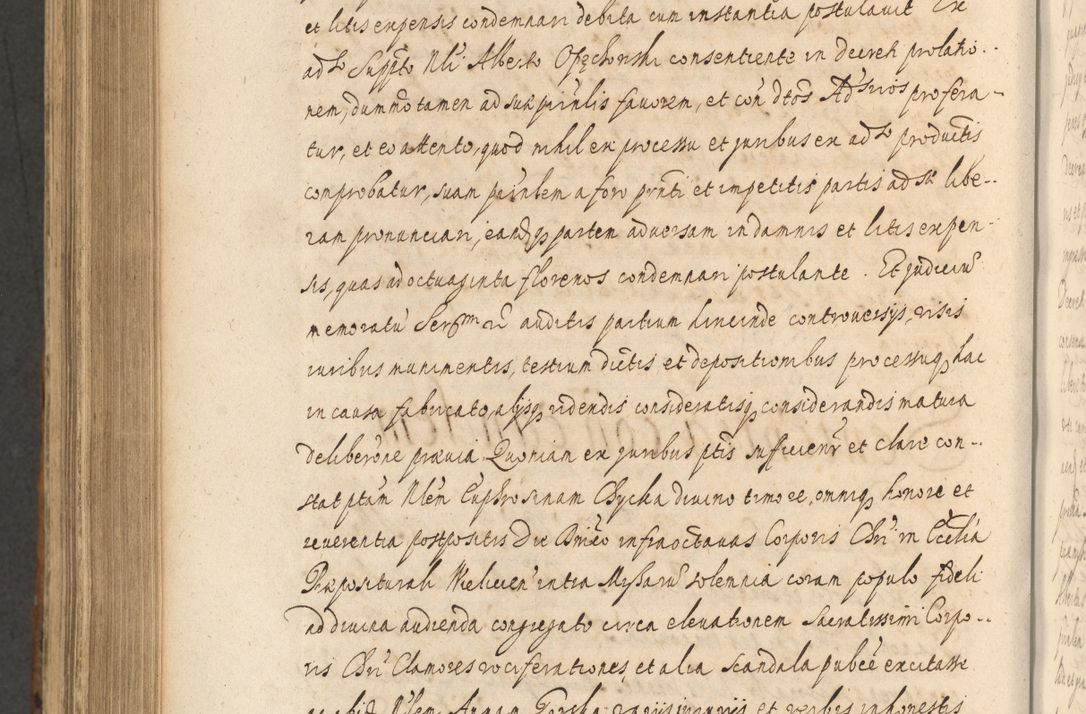 et litis expensis condemnari debita cum instantia postulavit Ex
adso Suppto Nli Alberto Opęchowski consentiente in decreti prolatio-
nem, dummotamen ad suæ prinlis favorem, et con dtos Adsuos profera-
tur, et eo attento, quod nihil ex processu et juribus ex adso productis
comprobatur, suam prinlem a foro pnti et impetitis partis adsæ libe-
ram pronunciari, eandq partem adversam in damnis et litis expen-
sis, quas ad octuaginta florenos condemnari postulante. Et Judiciu
memoratu Serssmi auditis partium hincinde controversys, visis
iuribus munimentis, testium dictis et depositionibus processuq hac
in causa fabricato, alysq videndis consideratisq considerandis matura
deliberone prævia. Quoniam ex juribus ptis sufficienr et clare con-
stat ptam Nlem Euphrosinam Chycka divino timore, omniq honore et
reverentia postpositis Die Dnico infra octavas Corporis Chri in Ecclia
Præpositurali Wielicien intra Myssaru solennia coram populo fideli
ad divina audienda congregato circa elevationem Sacratissimi Corpo-
ris Chri Clamores vociferationes, et alia scandala pubce excitasse
Nlem Annam Gorska variis iniuriis et verbis inhonestis